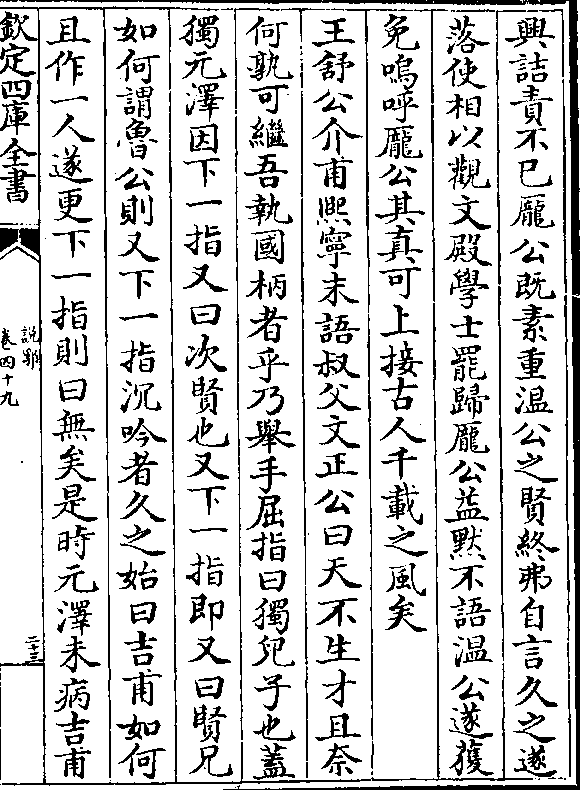 興詰責不已龎公既素重温公之賢終弗自言久之遂
落使相以觀文殿學士罷歸龎公益黙不語温公遂獲
免嗚呼龎公其真可上接古人千載之風矣
王舒公介甫熈寧末語叔父文正公曰天不生才且奈
何孰可繼吾執國柄者乎乃舉手屈指曰獨兒子也蓋
獨元澤因下一指又曰次賢也又下一指即又曰賢兄
如何謂魯公則又下一指沉吟者久之始曰吉甫如何
且作一人遂更下一指則曰無矣是時元澤未病吉甫
欽定四庫全書
説郛
卷四十九
二十三